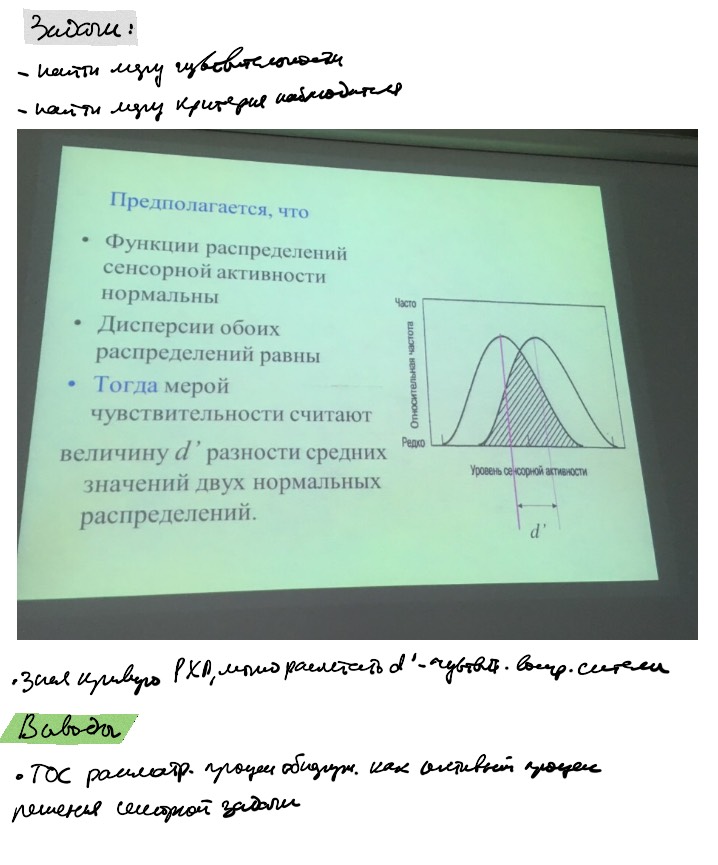 Задачи:
- найти меру чувствительности
- найти меру критерия наблюдателя
Предполагается, что
• Функции распределений
сенсорной активности
нормальны
• Дисперсии обоих
распределений равны
• Тогда мерой
чувствительности считают
величину d’ разности средних
значений двух нормальных
распределений.
Часто
Относительная частота
Редко
Уровень сенсорной активности
d’
• Зная кривую РХП, можно рассчитать d' - чувств.
Выводы
• ТОС рассматр. процесс обнаруж. как активный процесс
решения сенсорной задачи